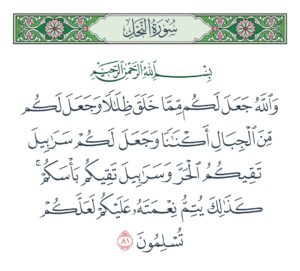 سُورَةُ النَّحْلِ
بِسْمِ اللَّهِ الرَّحْمَٰنِ الرَّحِيمِ
وَٱللَّهُ جَعَلَ لَكُم مِّمَّا خَلَقَ ظِلَٰلًا وَجَعَلَ لَكُم
مِّنَ ٱلْجِبَالِ أَكْنَٰنًا وَجَعَلَ لَكُمْ سَرَٰبِيلَ
تَقِيكُمُ ٱلْحَرَّ وَسَرَٰبِيلَ تَقِيكُم بَأْسَكُمْ ۚ
كَذَٰلِكَ يُتِمُّ نِعْمَتَهُۥ عَلَيْكُمْ لَعَلَّكُمْ
تُسْلِمُونَ ٨١